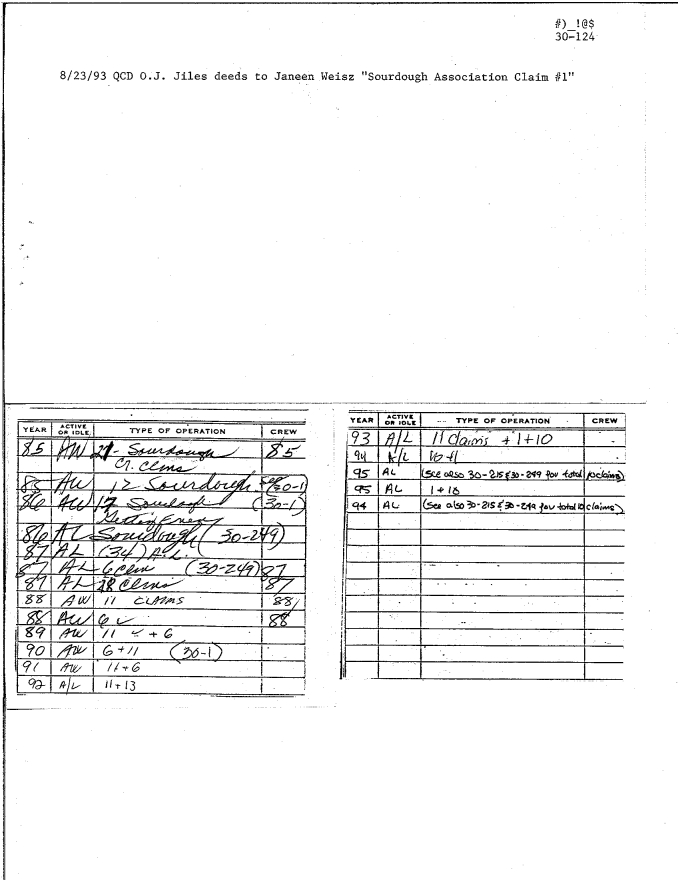 #)_!@$
30-124
8/23/93 QCD O.J. Jiles deeds to Janeen Weisz "Sourdough Association Claim #1"
YEAR ACTIVE OR IDLE TYPE OF OPERATION CREW
85 AW 21- Sourdough 85
Cr. Clms
85 AW 12 Sourdough (30-1)
86 AW 17 Sourdough (30-1)
86 AL Sourdough (30-249)
87 AL (34) A.L.
87 AL 6 Clm (30-249) 87
87 AL 28 Clms 87
88 AW 11 CLAIMS 88
88 AW 6 88
89 AW 11 + 6
90 AW 6 + 11 (30-1)
91 AW 11+6
92 A/L 11+13
YEAR ACTIVE OR IDLE TYPE OF OPERATION CREW
93 A/L 11 Claims + 1+10
94 A/L 10 +1
95 AL (see also 30-215 & 30-249 for total 10 claims)
95 AL 1 + 10
94 AL (see also 30-215 & 30-249 for total 10 claims)